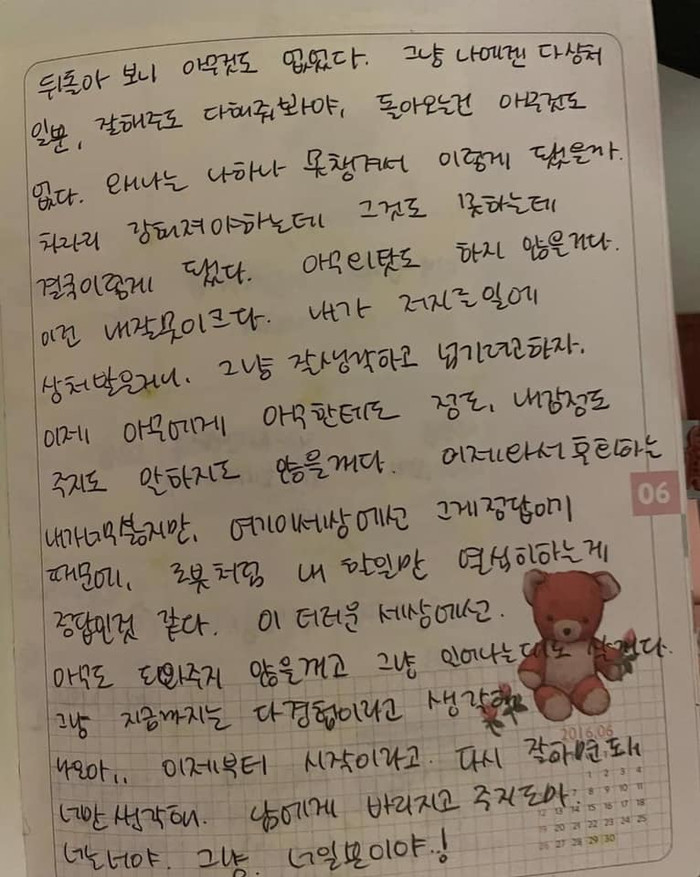 뒤돌아 보니 아무것도 없었다. 그냥 나에겐 다상처
일뿐, 잘해주도 다해줘봐야, 돌아오는건 아무것도
없다. 왜나는 나하나 못챙겨서 이렇게 됐을까.
차라리 강해져야하는데 그것도 못하는데
결국이렇게 됐다. 아무리탓도 하지 않을거다.
이건 내잘못이크다. 내가 저지른일에
상처받은거니. 그냥 잘생각하고 넘기려고하자.
이제 아무에게 아무한테도 정도, 내감정도
주지도 말하지도 않을꺼다. 이제와서 후회하는
내가너무싫지만, 여기이세상에선 그게정답이기
때문에, 로봇처럼 내 할일만 열심히하는게
정답인것 같다. 이 더러운 세상에선.
아무도 도와주지 않을꺼고 그냥
그냥 지금까지는 다경험이라고 생각해
나모아,, 이제부터 시작이라고. 다시 잘하면돼
너만생각해. 남에게 바라지고 주지도마.
너는너야. 그냥. 너일뿐이야.!
06
2016.06
1 2 3 4
7 8 9 10 11
12 13 14 15 16 17 18
19 20 21 22 23 24 25
26 27 28 29 30